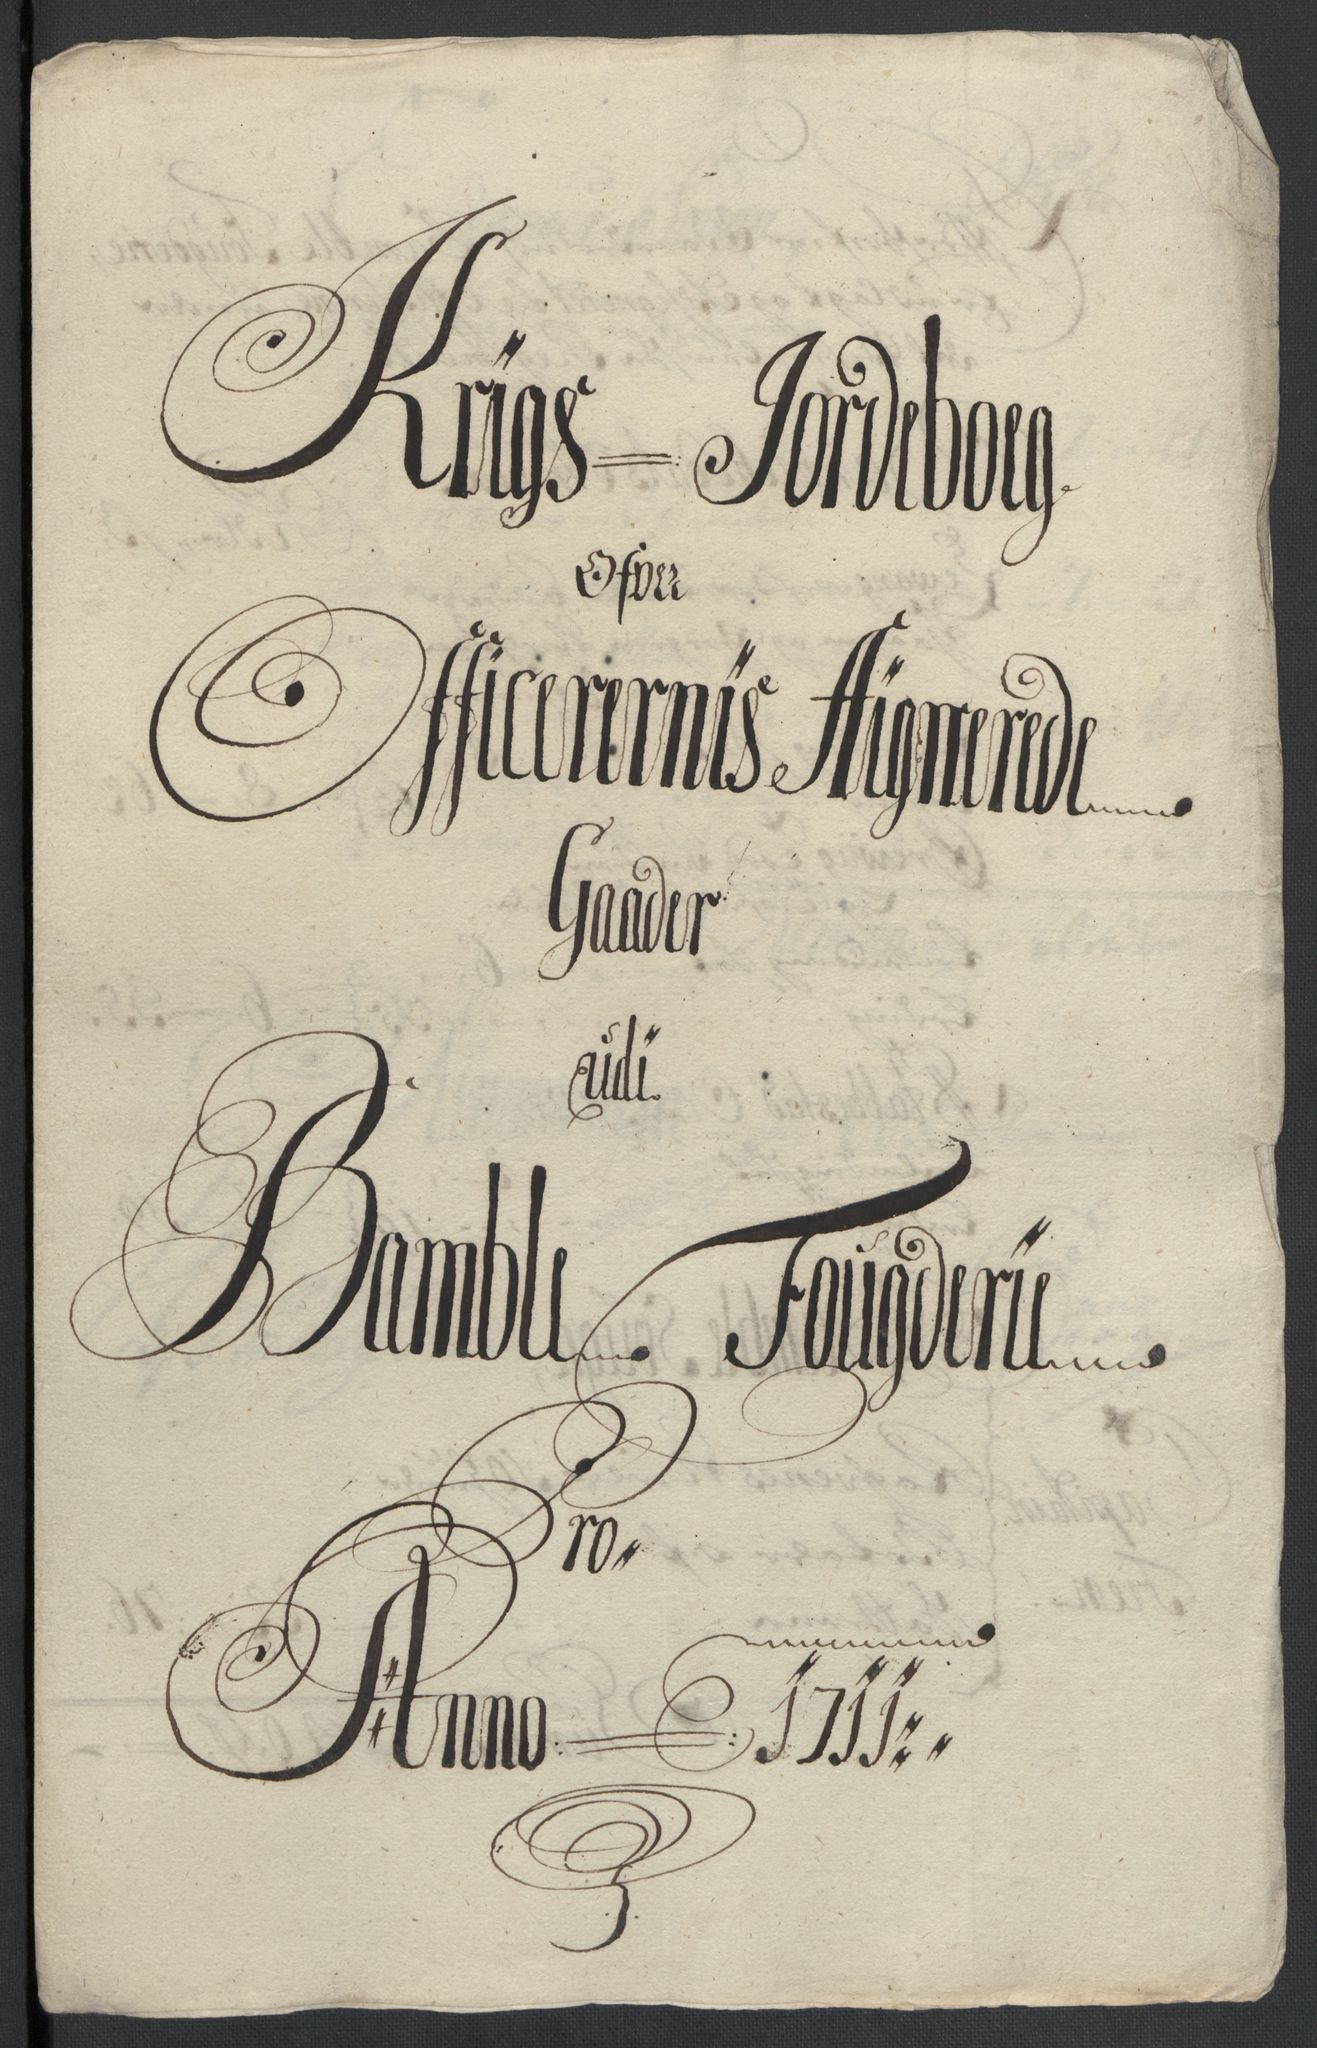 Krigs = Jordeboeg
Ofver
Officerernis Aignerede
Gaader
udi
Bamble Fougderie
Pro
Anno = 1711